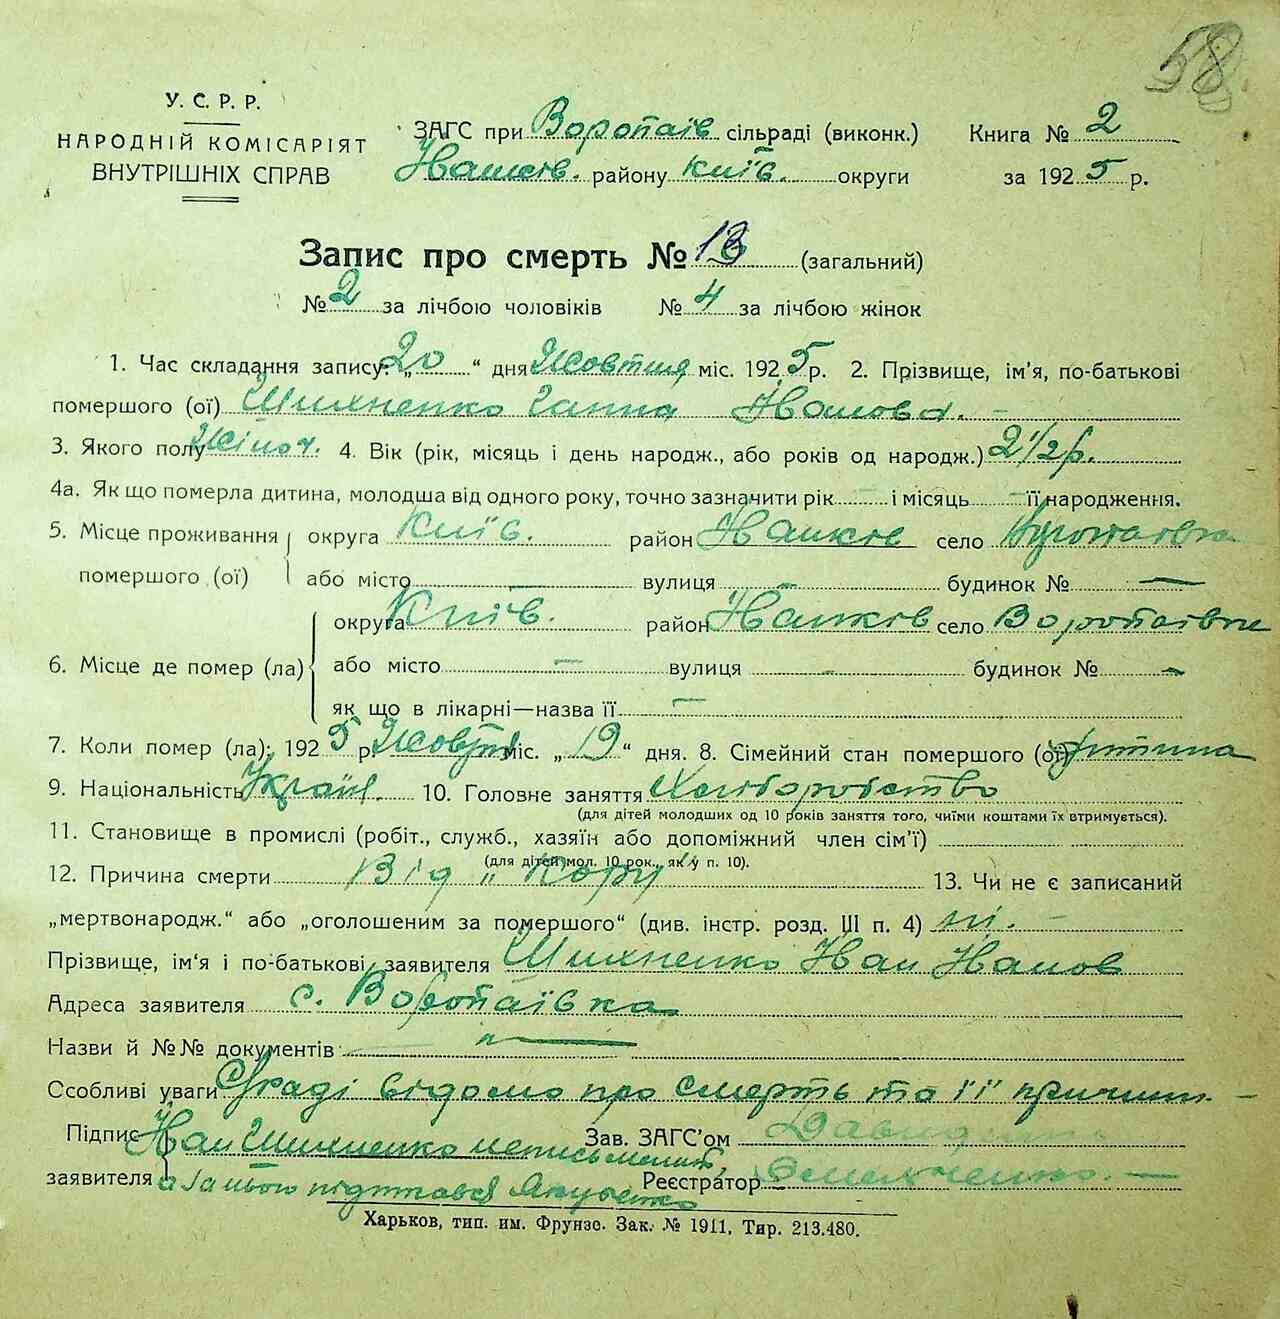 58
У. С. Р. Р.
НАРОДНІЙ КОМІСАРІЯТ
ВНУТРІШНІХ СПРАВ
ЗАГС при Воропаїв сільраді (виконк.) Книга № 2
району Київ. округи за 1925 р.
Запис про смерть № 13 (загальний)
№ 2 за лічбою чоловіків № 4 за лічбою жінок
1. Час складання запису: „20“ дня Жовтня міс. 1925 р. 2. Прізвище, ім'я, по-батькові
помершого (ої) Шихненко Ганна Іванова. -
3. Якого полу Жіноч. 4. Вік (рік, місяць і день народж., або років од народж.) 2 1/2 р.
4а. Як що померла дитина, молодша від одного року, точно зазначити рік - і місяць - її народження.
5. Місце проживання округа Київ. район село
помершого (ої) або місто — вулиця - будинок № —
округа Київ. район село Воропаївка
6. Місце де помер (ла) або місто — вулиця - будинок № -
як що в лікарні—назва її —
7. Коли помер (ла): 1925 р. Жовтня міс. „19“ дня. 8. Сімейний стан помершого (ої) дитина
9. Національність Україн. 10. Головне заняття Хліборобство
(для дітей молодших од 10 років заняття того, чиїми коштами їх втримується).
11. Становище в промислі (робіт., служб., хазяїн або допоміжний член сім'ї)
(для дітей мол. 10 рок., як у п. 10).
12. Причина смерти Від „Кору" 13. Чи не є записаний
„мертвонародж.“ або „оголошеним за помершого“ (див. інстр. розд. III п. 4) ні. -
Прізвище, ім'я і по-батькові заявителя Шихненко Іван Іванов
Адреса заявителя с. Воропаївка
Назви й №№ документів —
Особливі уваги Сраді відомо про смерть та її причини. -
Підпис Іван Шихненко неписьменний, Зав. ЗАГС'ом
заявителя а за нього підписався Якущенко Реєстратор Омельченко. —
Харьков, тип. им. Фрунзе. Зак. № 1911, Тир. 213.480.